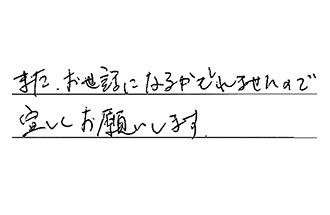 また、お世話になるかもしれませんので
宜しくお願いします。